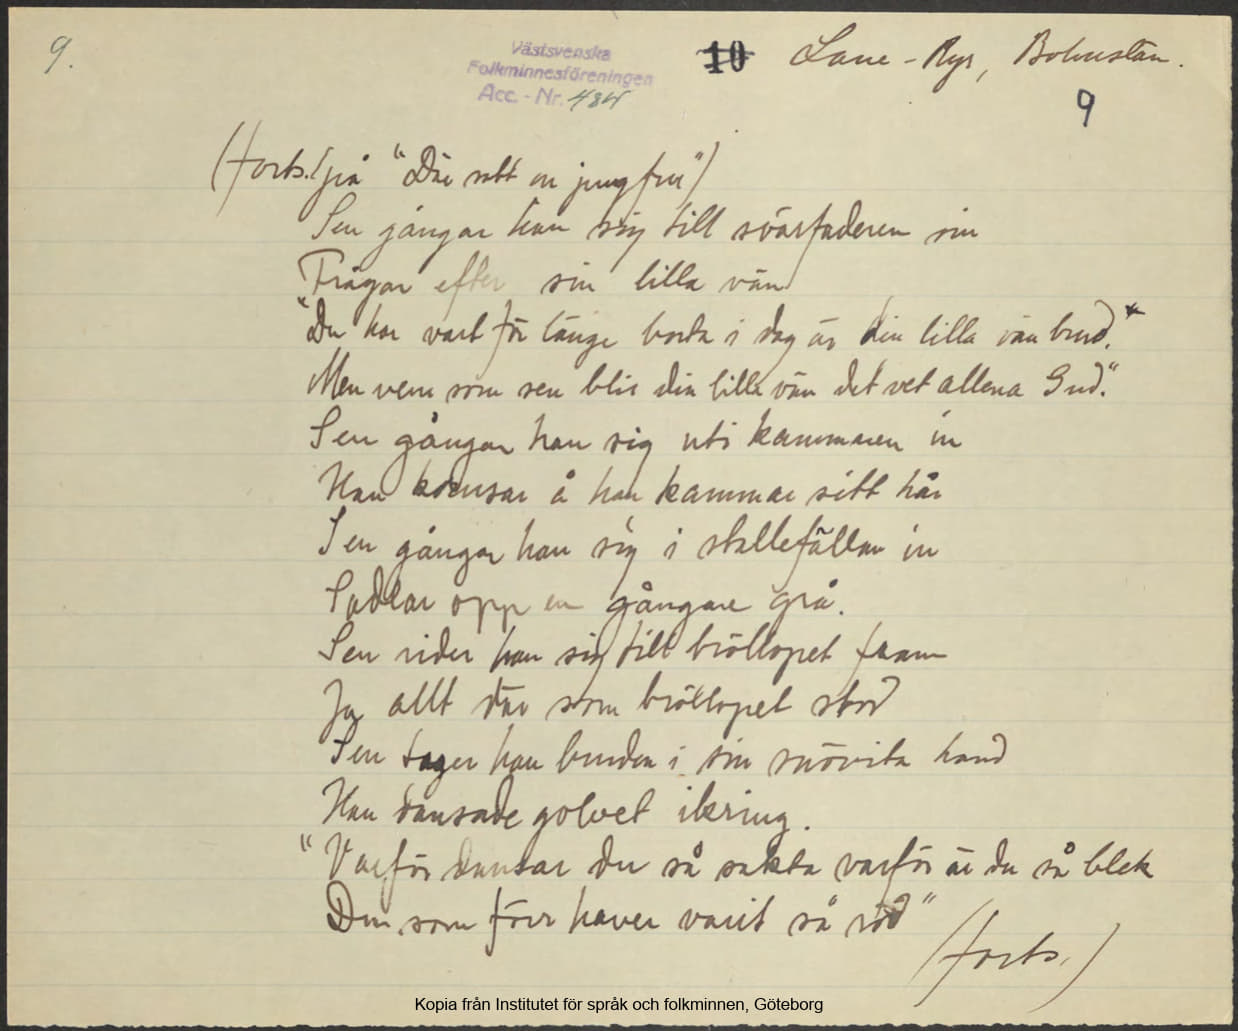 9.
Västsvenska
Folkminnesföreningen
Acc. - Nr. 484
10 Lane-Ryr, Bohuslän.
9
(Forts. på "Där satt en jungfru")
Sen gångar han sig till svärfaderen sin
Frågar efter sin lilla vän
"Du har vart för länge borta i dag är din lilla vän brud."
Men vem som sen blir din lilla vän det vet allena Gud."
Sen gångar han sig uti kammaren in
Han krusar å han kammar sitt hår
Sen gångar han sig i stallefållan in
Sadlar opp en gångare grå.
Sen rider han sig till bröllopet fram
Ja allt där som bröllopet stod
Sen tager han bruden i sin snövita hand
Han dansade golvet ikring.
"Varför dansar du så sakta varför är du så blek
Du som förr haver varit så röd"
(forts.)
Kopia från Institutet för språk och folkminnen, Göteborg